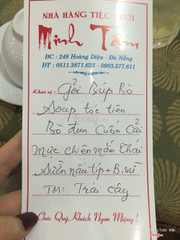 NHÀ HÀNG TIỆC CƯỚI
Minh Tâm
ĐC : 248 Hoàng Diệu - Đà Nẵng
ĐT : 0511.3871.633 - 0903.577.611
Khai vị : Gỏi Búp Bò
Soup tóc tiên
Bò đun Cuốn Cải
Mực chiên mắm Thái
Sườn nấu típ + B.mì
TM: Trái cây
Chúc Quý Khách Ngon Miệng !